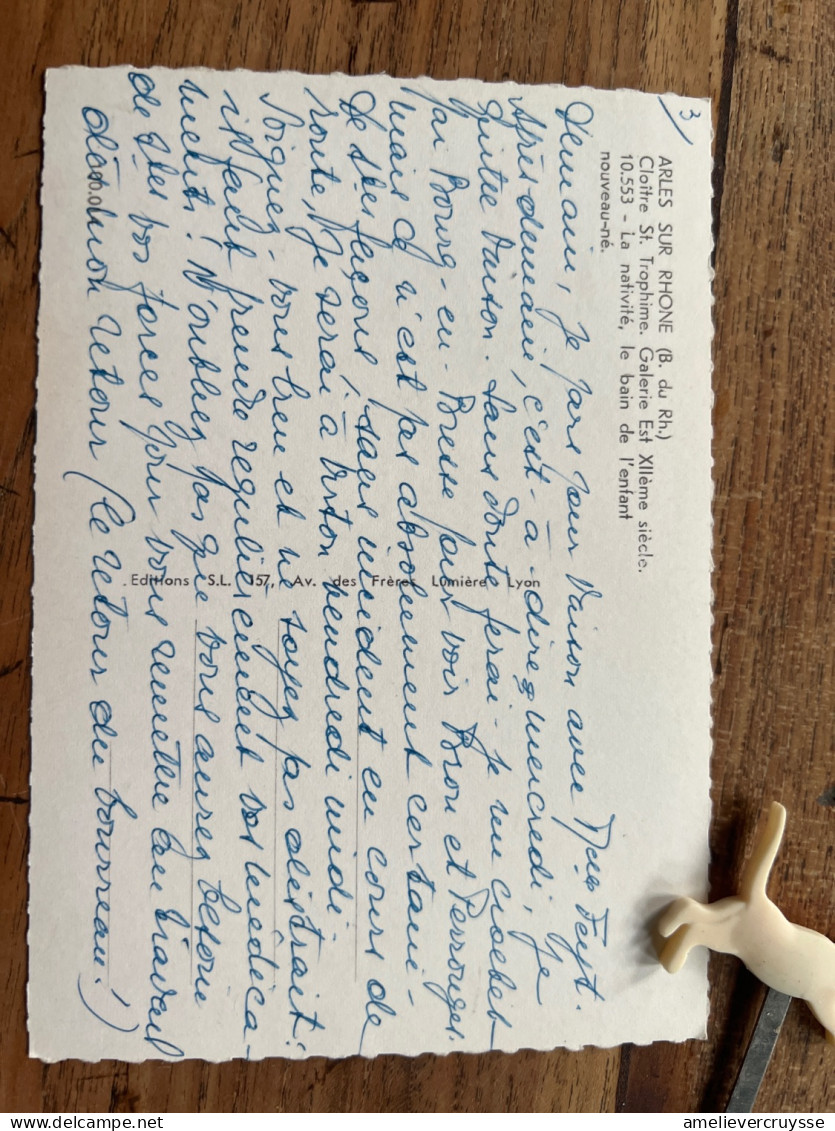 3/
ARLES SUR RHONE (B. du Rh.)
Cloître St. Trophime. Galerie Est XIIème siècle.
10.553 - La nativité, le bain de l'enfant
nouveau-né.
Demain, je pars pour Vaison avec Mrs Feyt.
Après-demain, c'est-à-dire mercredi, je
quitte Vaison. Sans doute ferai-je un crochet
par Bourg-en-Bresse pour voir Brou et Pérouges.
mais ce n'est pas absolument certain.
De ttes façons, sans incident en cours de
route, je serai à Virton vendredi midi.
Soignez-vous bien et ne soyez pas distrait:
il faut prendre régulièrement vos médica-
ments! N'oubliez pas que vous aurez besoin
de ttes vos forces pour vous remettre au travail
dès mon retour (le retour du bourreau!)
Editions S.L. 157, Av. des Frères Lumière Lyon
amelievercruysse